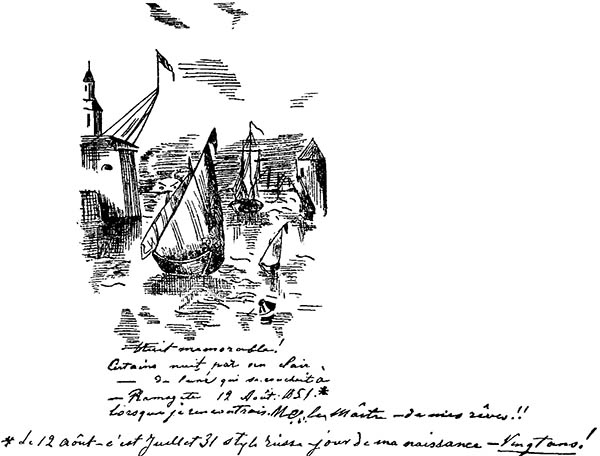 Nuit memorable!
Certaine nuit par un clair
— de lune qui se couchait à
— Ramsgate 12 Août. 1851.*
lorsque je rencontrais. M∴ le Maître — de mes rêves!!
* Le 12 Août — c'est Juillet 31 style russe — jour de ma naissance — Vingt ans!